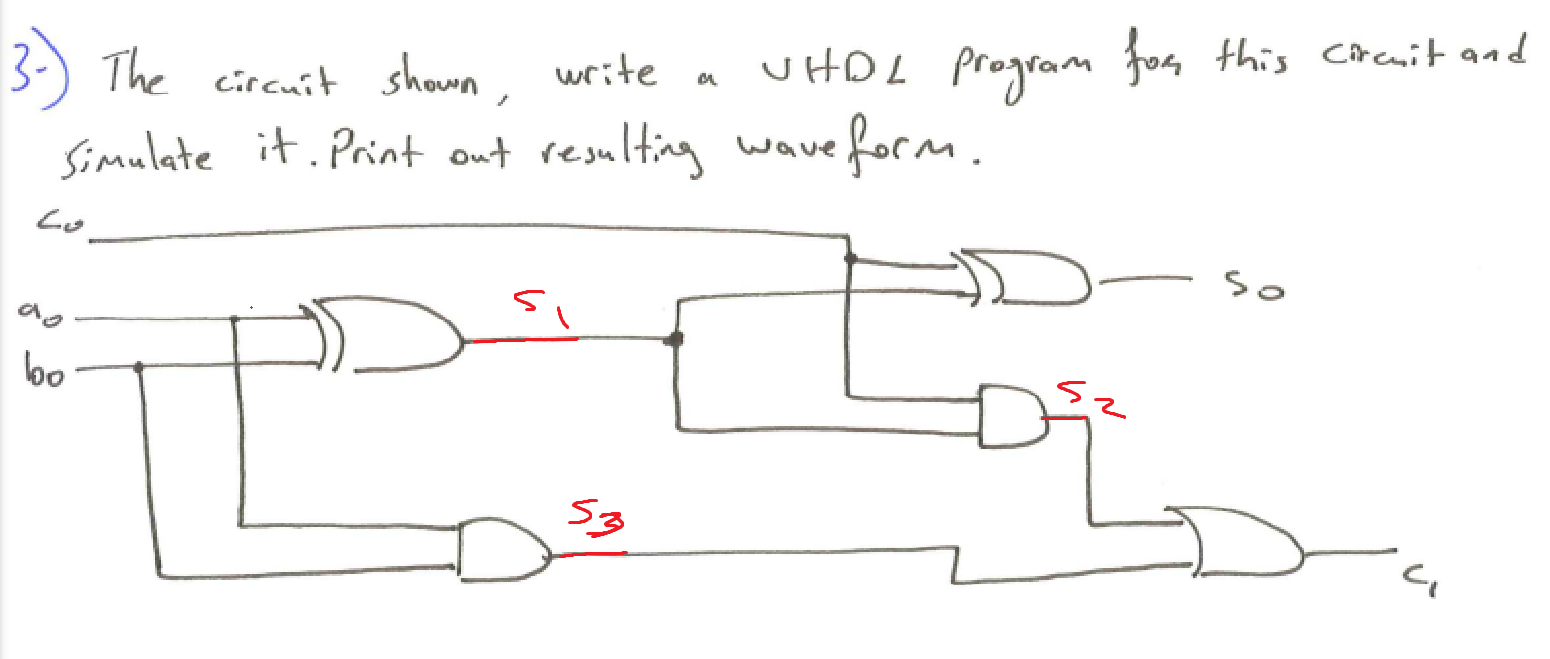 3-) The circuit shown, write a VHDL program for this circuit and
simulate it. Print out resulting waveform.
c0
a0
b0
S1
S0
S2
S3
c1